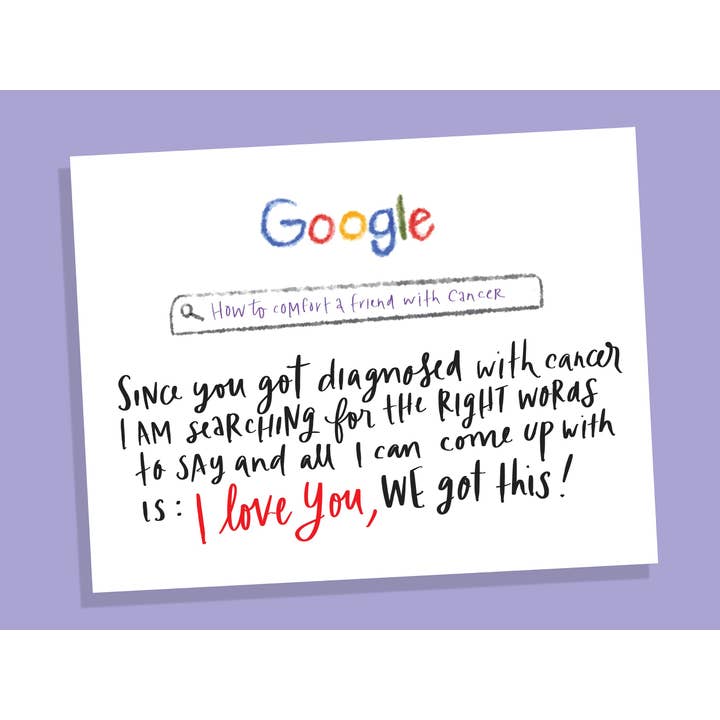 Google
How to comfort a friend with cancer
Since you got diagnosed with cancer
I AM searching for the RIGHT words
to say and all I can come up with
is: I love you, WE got this!